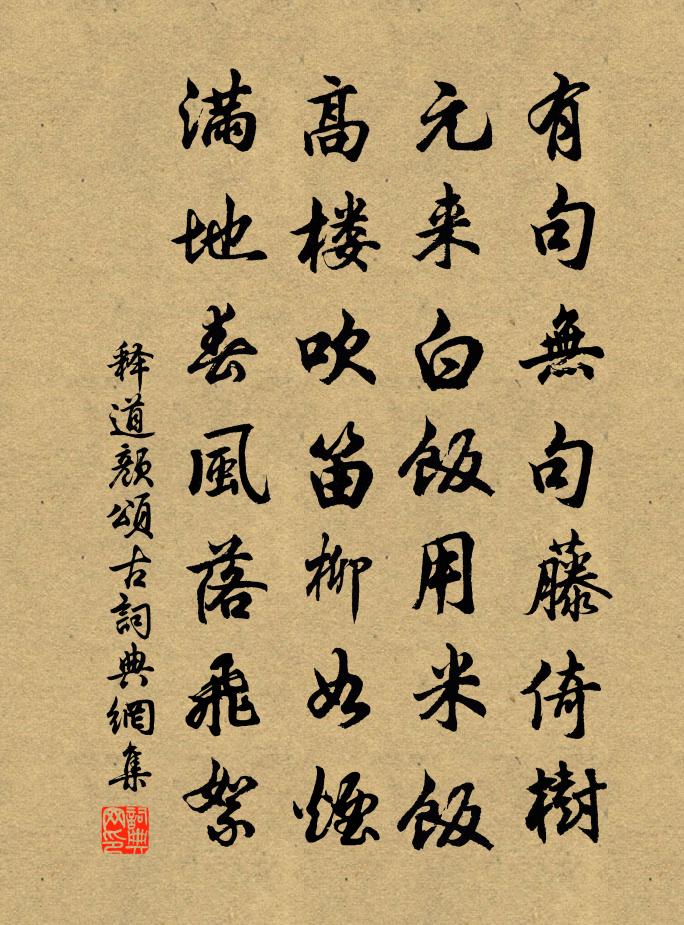 有句無句藤倚樹
元来白飯用米飯
高楼吹笛柳如煙
滿地春風落飛絮
释道颜頌古詞典網集
詞典网印